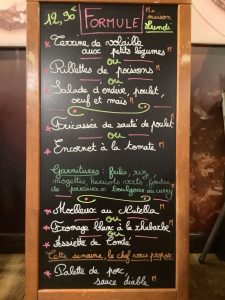 12,90€ FORMULE M = maison
Lundi
* Terrine de volaille M
aux petits légumes
ou
* Rillettes de poissons M
ou
* Salade d'endive, poulet,
oeuf et maïs M
* Fricassée de sauté de poulet M
ou
* Encornet à la tomate M
Garnitures : frites, riz
mogettes, haricots verts, fondue
de poireaux boulgour au curry
* Moelleux au Nutella M
ou
* Fromage blanc à la rhubarbe M
ou
* Assiette de Comté
Cette semaine, le chef vous propose
* Palette de porc, M
sauce diable M